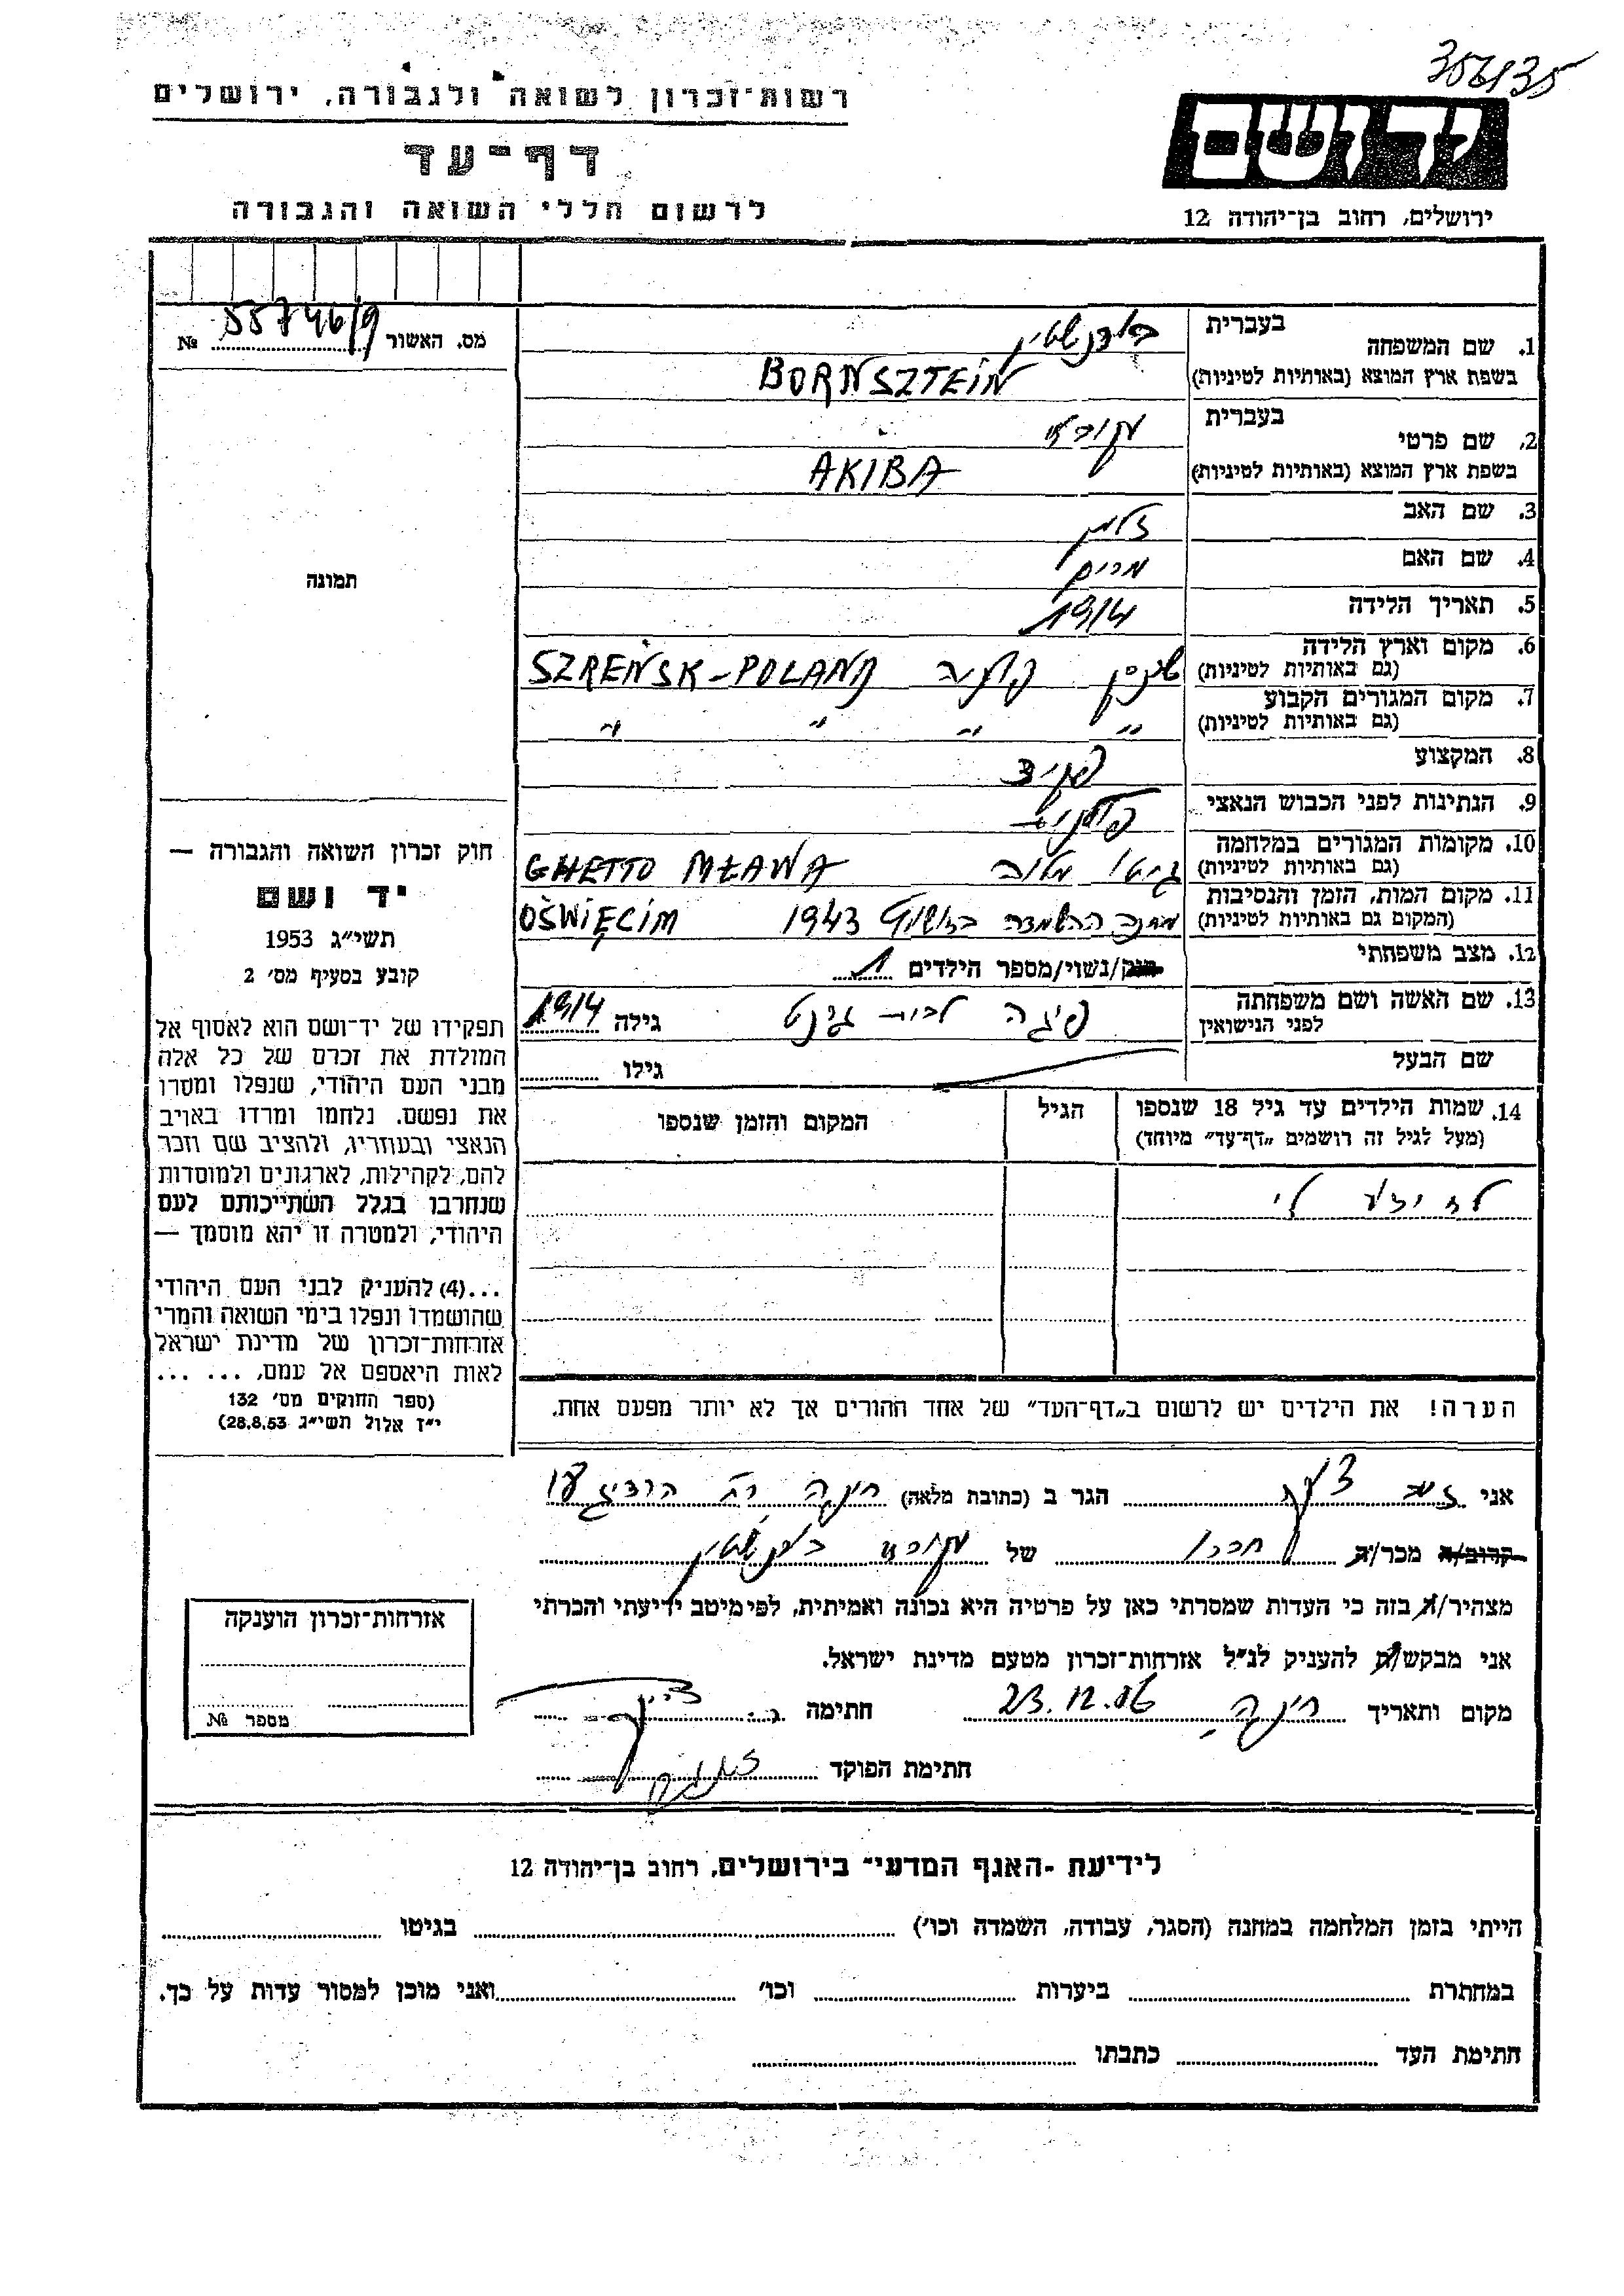 356135
רשות־זכרון לשואה ולגבורה, ירושלים
יד ושם
דף־עד
לרשום חללי השואה והגבורה
ירושלים, רחוב בן־יהודה 12
מס. האשור 55746/9 №
תמונה
1. שם המשפחה בעברית בורנשטין
בשפת ארץ המוצא (באותיות לטיניות) BORNSZTEIN
2. שם פרטי בעברית עקיבא
בשפת ארץ המוצא (באותיות לטיניות) AKIBA
3. שם האב זלמן
4. שם האם מרים
5. תאריך הלידה 1914
6. מקום וארץ הלידה
(גם באותיות לטיניות) שרנסק פולניה SZREŃSK-POLAND
7. מקום המגורים הקבוע
(גם באותיות לטיניות) " " " "
8. המקצוע
9. הנתינות לפני הכבוש הנאצי פולנית
10. מקומות המגורים במלחמה
(גם באותיות לטיניות) גיטו מלווה GHETTO MŁAWA
11. מקום המות, הזמן והנסיבות
(המקום גם באותיות לטיניות) מחנה ההשמדה 1943 OŚWIĘCIM
12. מצב משפחתי רוק/נשוי/מספר הילדים 1
13. שם האשה ושם משפחתה
לפני הנישואין פיגה לבית גילה 1914
שם הבעל גילו
14. שמות הילדים עד גיל 18 שנספו
(מעל לגיל זה רושמים "דף־עד" מיוחד)
הגיל
המקום והזמן שנספו
לא ידוע לי
הערה! את הילדים יש לרשום ב"דף־העד" של אחד ההורים אך לא יותר מפעם אחת.
חוק זכרון השואה והגבורה —
יד ושם
תשי"ג 1953
קובע בסעיף מס' 2
תפקידו של יד־ושם הוא לאסוף אל
המולדת את זכרם של כל אלה
מבני העם היהודי, שנפלו ומסרו
את נפשם, נלחמו ומרדו באויב
הנאצי ובעוזריו, ולהציב שם וזכר
להם, לקהילות, לארגונים ולמוסדות
שנחרבו בגלל השתייכותם לעם
היהודי, ולמטרה זו יהא מוסמך —
...(4) להעניק לבני העם היהודי
שהושמדו ונפלו בימי השואה והמרי
אזרחות־זכרון של מדינת ישראל
לאות היאספם אל עמם, ... ...
(ספר החוקים מס' 132
י"ז אלול תשי"ג 28.8.53)
אני זאב הגר ב (כתובת מלאה) חיפה רח
קרוב/ה מכר/ה חברו של עקיבא בורנשטין
מצהיר/ה בזה כי העדות שמסרתי כאן על פרטיה היא נכונה ואמיתית, לפי מיטב ידיעתי והכרתי
אני מבקש/ת להעניק לנ"ל אזרחות־זכרון מטעם מדינת ישראל.
מקום ותאריך חיפה, 23.12.56 חתימה
חתימת הפוקד
אזרחות־זכרון הוענקה
מספר №
לידיעת -האגף המדעי- בירושלים, רחוב בן־יהודה 12
הייתי בזמן המלחמה במחנה (הסגר, עבודה, השמדה וכו') בגיטו
במחתרת ביערות וכו' ואני מוכן למסור עדות על כך.
חתימת העד כתבתו